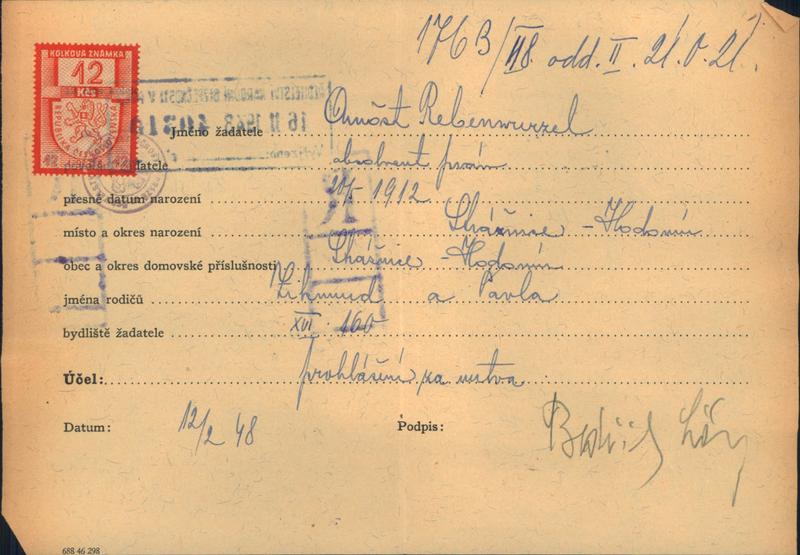 176B/48 odd. II. 21.V.21.
KOLKOVÁ ZNÁMKA
12
Kčs
REPUBLIKA ČESKOSLOVENSKÁ
ŘEDITELSTVÍ NÁRODNÍ BEZPEČNOSTI V
16 II 1948 40319
Jméno žadatele Arnošt Rebenwurzel
žadatele absolvent práv
přesné datum narození 1912
místo a okres narození Strážnice - Hodonín
obec a okres domovské příslušnosti Strážnice - Hodonín
jména rodičů Zikmund a Pavla
bydliště žadatele XVI 160
Účel: prohlášení za mrtva
Datum: 12/2 48 Podpis:
688 46 298